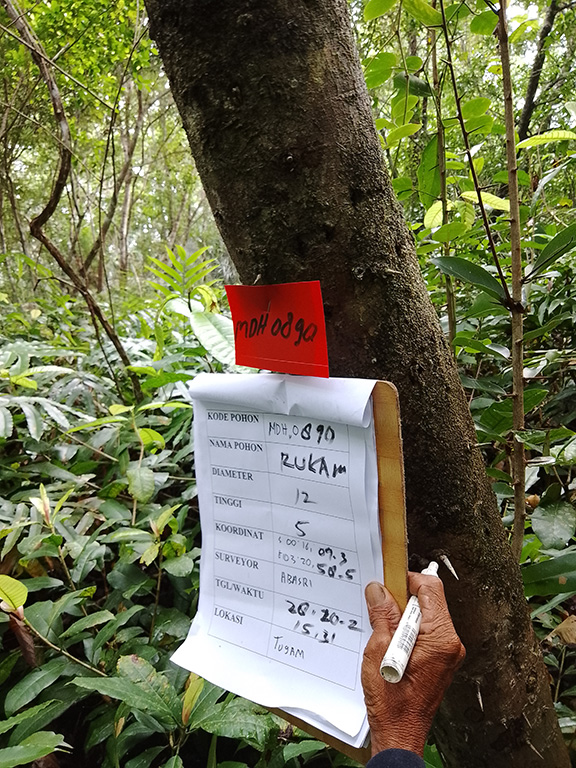 MDH 0890
KODE POHON MDH.0890
NAMA POHON RUKAM
DIAMETER 12
TINGGI 5
KOORDINAT
SURVEYOR ABASRI
TGL/WAKTU 15.31
LOKASI TUGAM